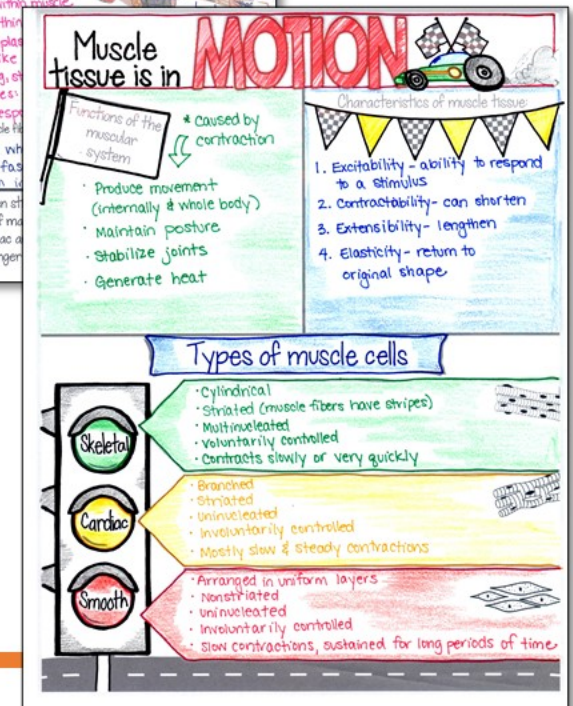 Muscle
tissue is in MOTION
Functions of the
muscular
system
* Caused by
contraction
· Produce movement
(internally & whole body)
· Maintain posture
· Stabilize joints
· Generate heat
Characteristics of muscle tissue:
1. Excitability - ability to respond
to a stimulus
2. Contractability - can shorten
3. Extensibility - lengthen
4. Elasticity - return to
original shape
Types of muscle cells
Skeletal
· Cylindrical
· Striated (muscle fibers have stripes)
· Multinucleated
· Voluntarily controlled
· Contracts slowly or very quickly
Cardiac
· Branched
· Striated
· Uninucleated
· Involuntarily controlled
· Mostly slow & steady contractions
Smooth
· Arranged in uniform layers
· Nonstriated
· uninucleated
· Involuntarily controlled
· Slow contractions, sustained for long periods of time